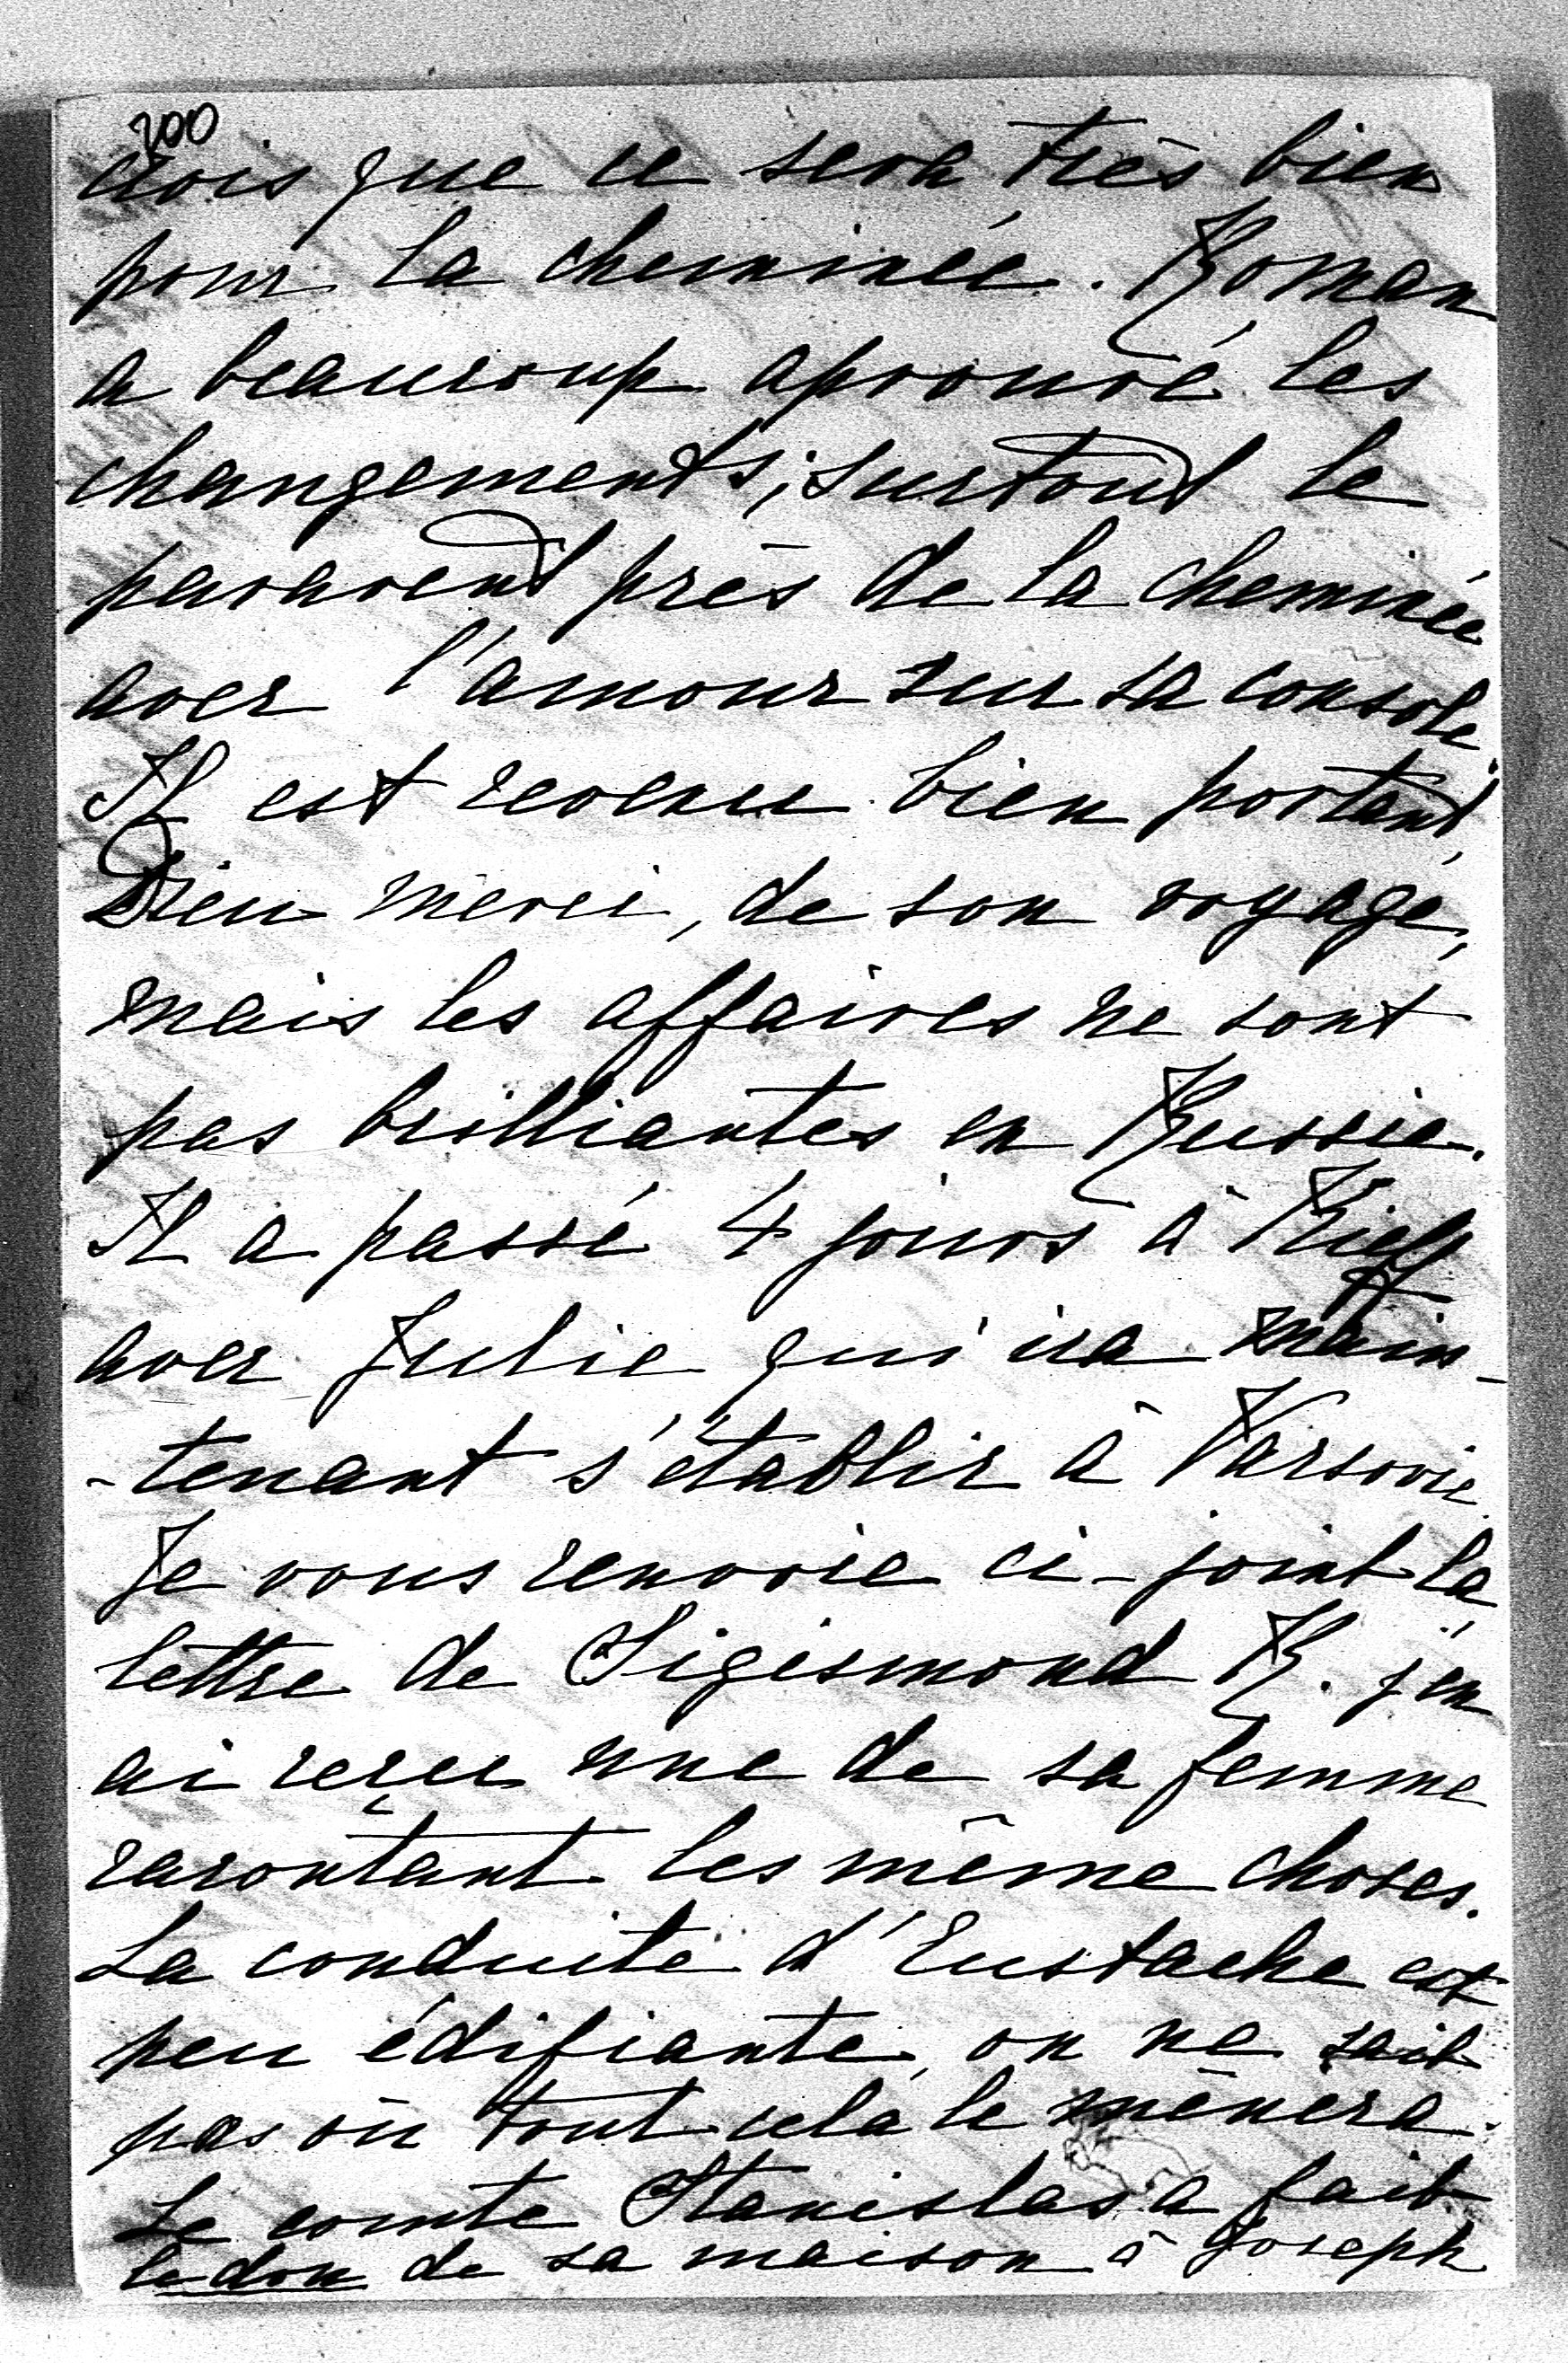 200
crois que ce sera très bien
pour la cheminée. Roman
a beaucoup aprouvé les
changements, surtout le
paravent près de la cheminée
avec l'amour sur sa console.
Il est revenu bien portant,
Dieu merci, de son voyage,
mais les affaires ne sont
pas brilliantes en Russie.
Il a passé 4 jours à Kieff
avec Julie qui ira main-
-tenant s'établir à Varsovie.
Je vous renvoie ci-joint la
lettre de Sigismond R. j'en
ai reçu une de sa femme
racontant les même choses.
La conduite d'Eustache est
peu édifiante, on ne sait
pas où tout cela le mènera.
Le comte Stanislas a fait
le don de sa maison à Joseph